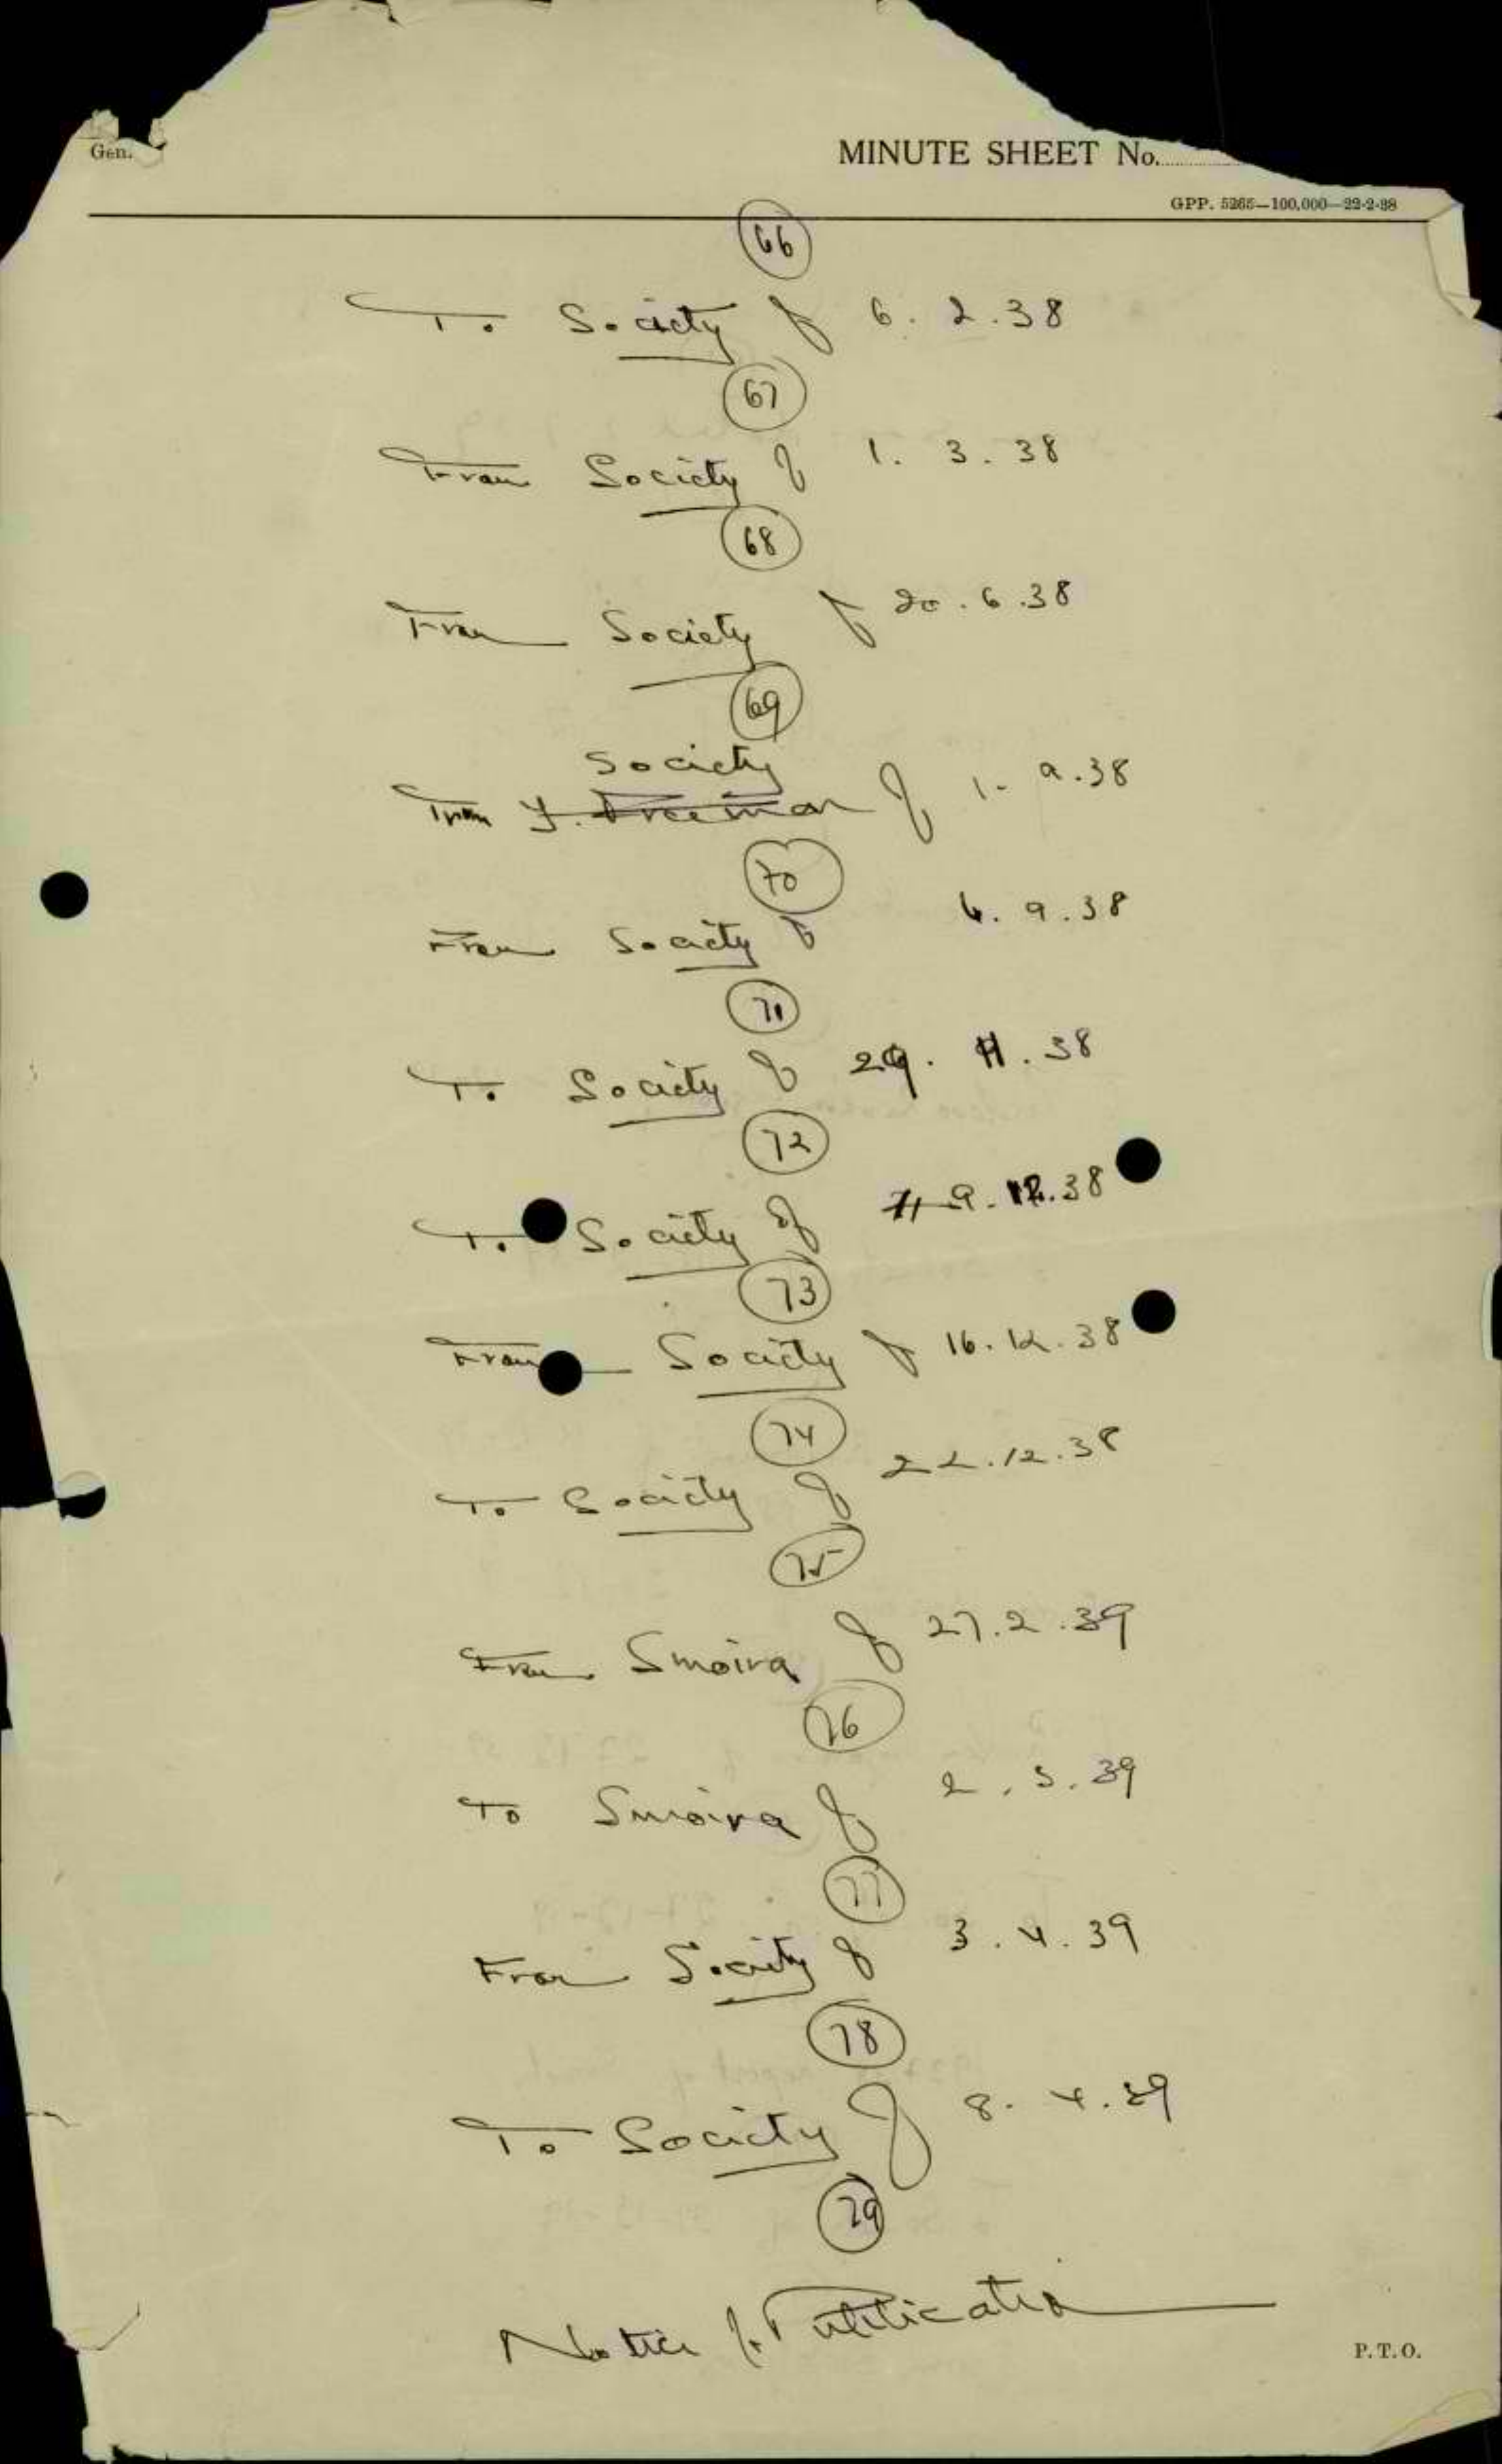 Gen.
MINUTE SHEET No.
GPP. 5265—100,000—22-2-38
66
To Society of 6. 2. 38
67
From Society of 1. 3. 38
68
From Society of 20. 6. 38
69
Society
From F. Freeman of 1. 9. 38
70
From Society of 6. 9. 38
71
To Society of 29. 11. 38
72
To Society of 9. 12. 38
73
From Society of 16. 12. 38
74
To Society of 22. 12. 38
75
From Smoira of 27. 2. 39
76
To Smoira of 2. 3. 39
77
From Society of 3. 4. 39
78
To Society of 8. 4. 39
79
Notice for Publication
P.T.O.